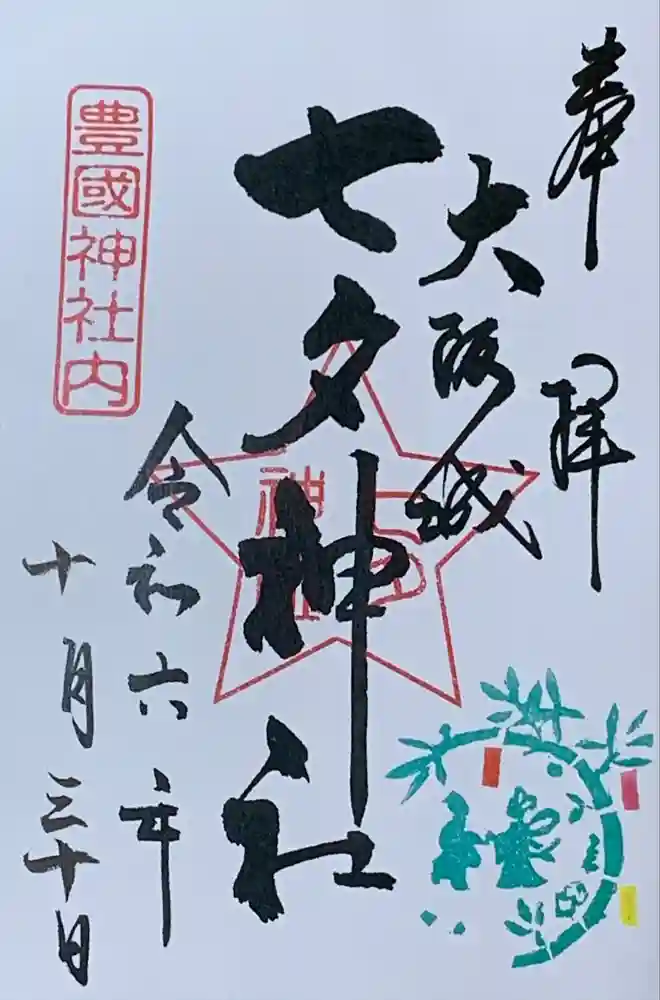 奉拝
大阪城
七夕神社
令和六年
十月三十日
豊國神社内